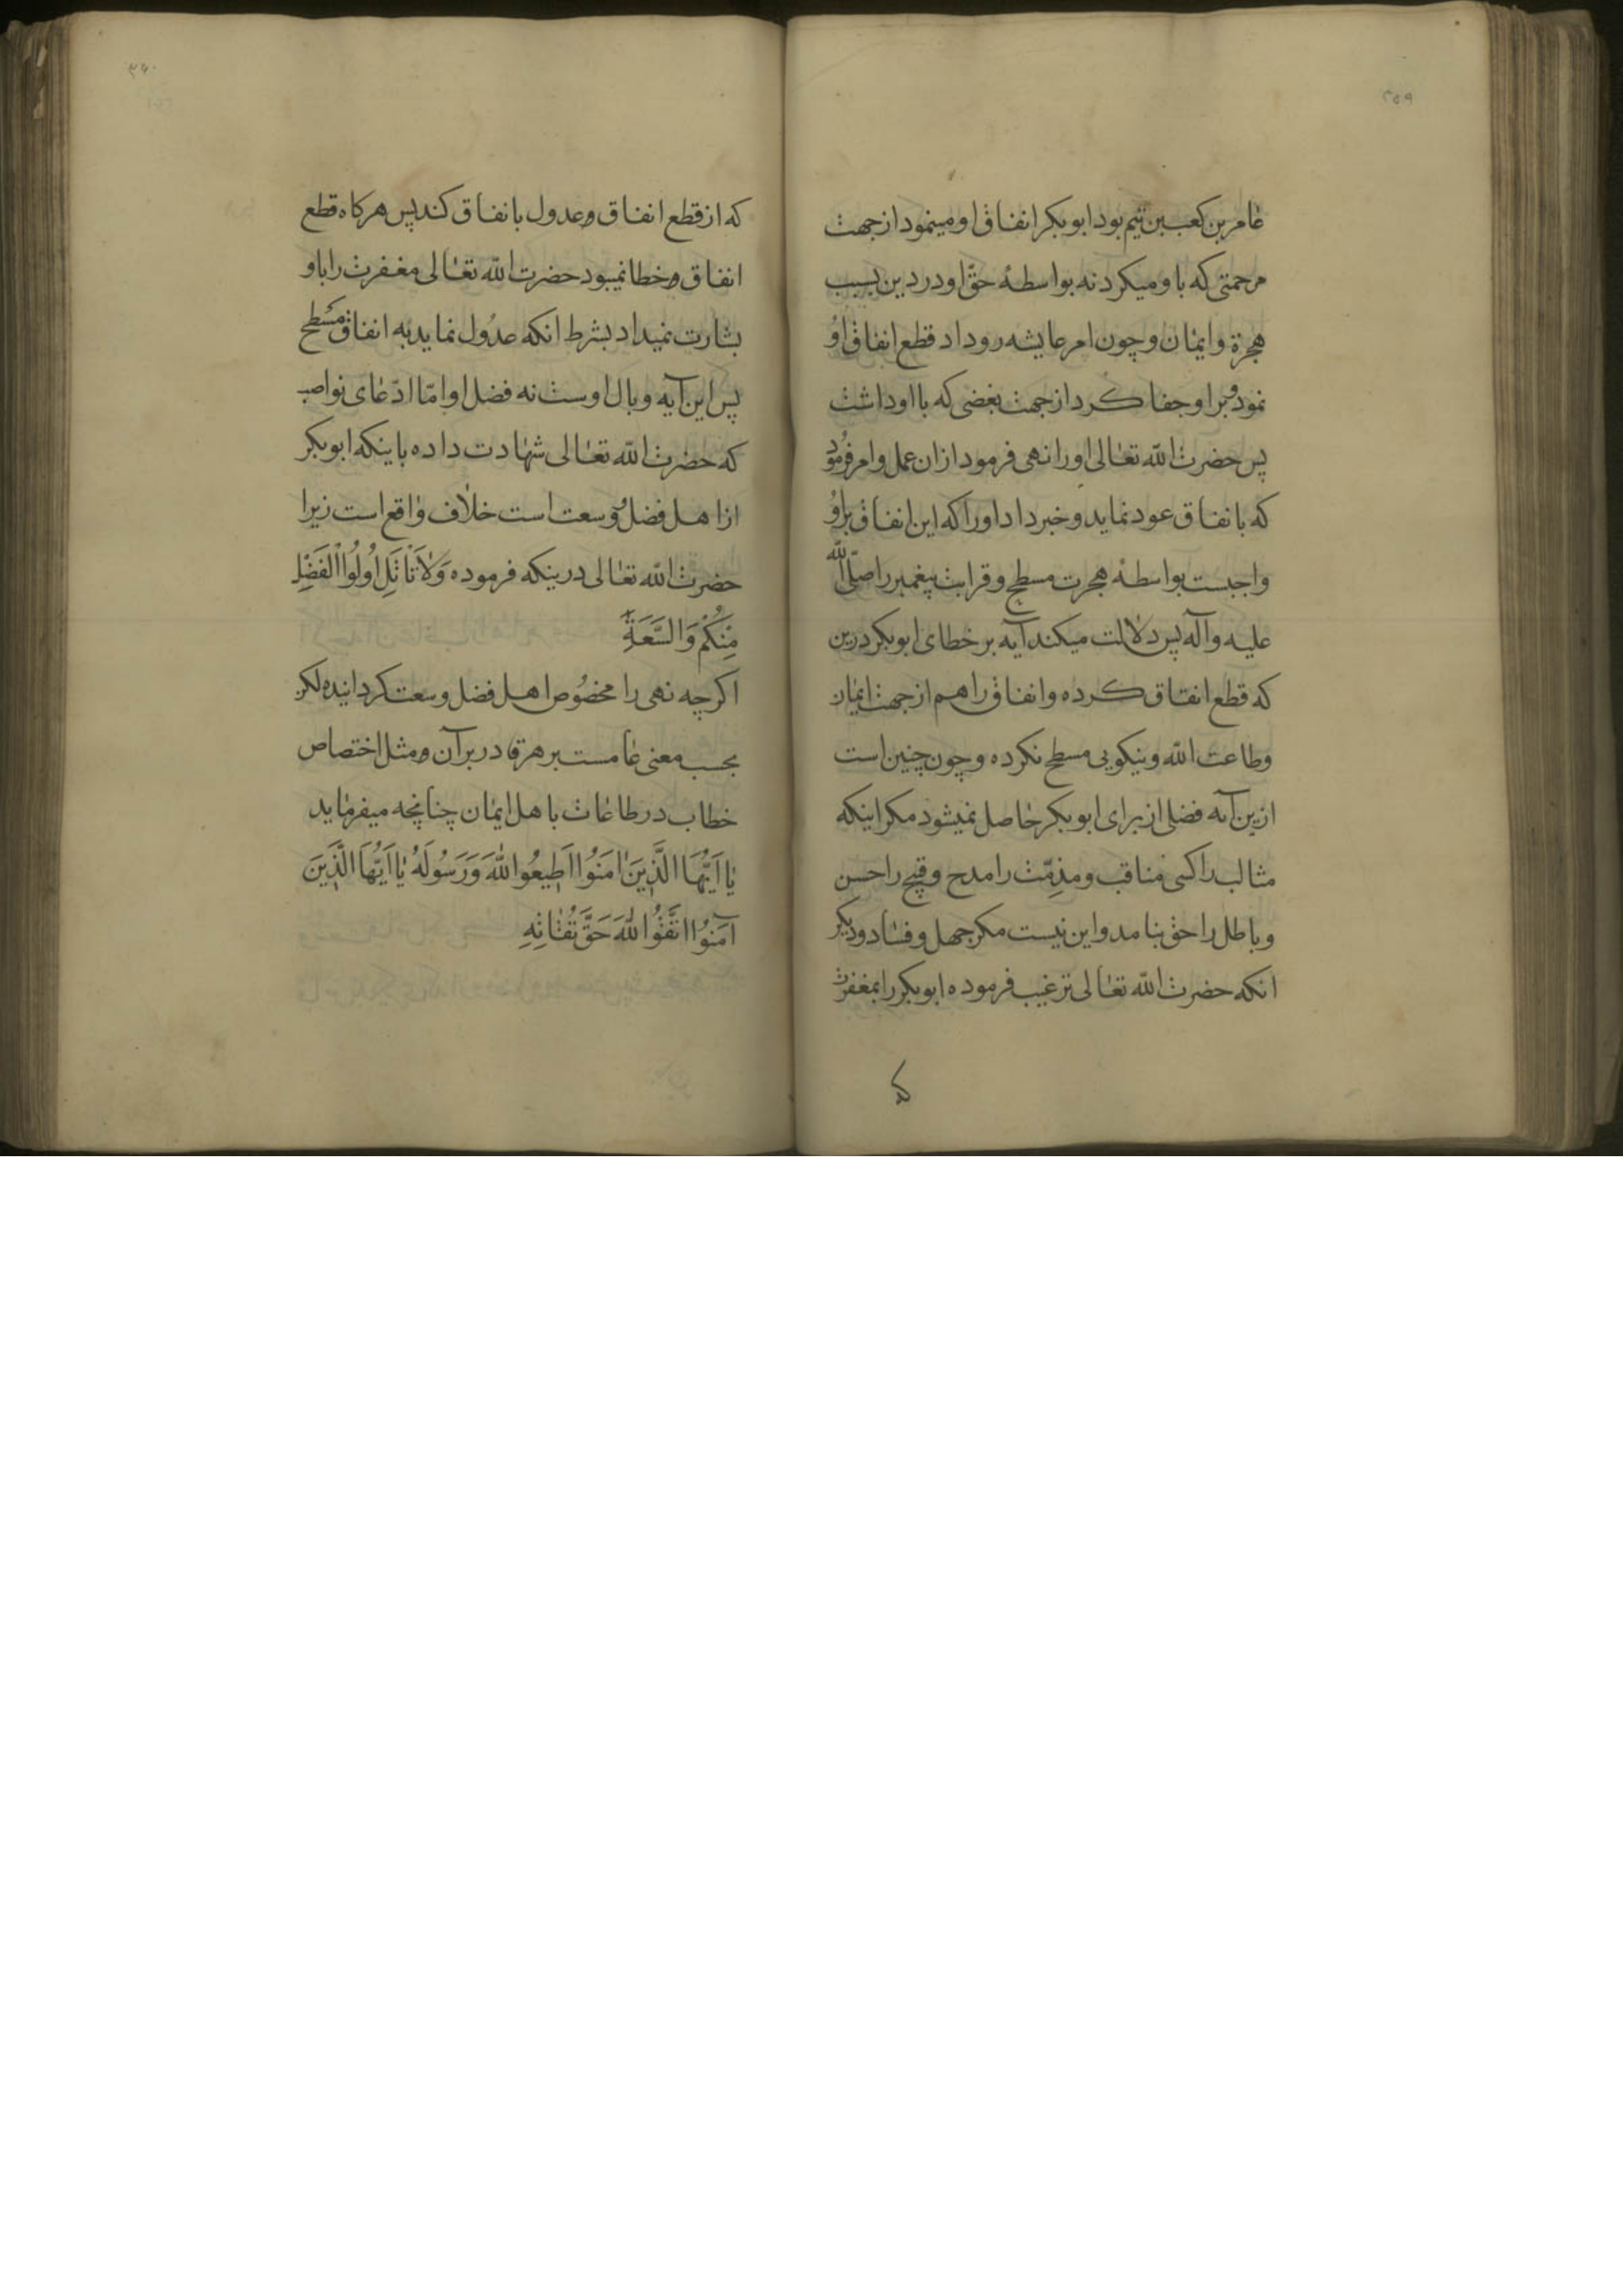 ۲۵۹
عامر بن کعب بن تیم بود ابوبکر انفاق او مینمود از جهت
مرحمتی که باو میکرد نه بواسطهٔ حقّ او در دین بسبب
هجرة و ایمان و چون امر عایشه رو داد قطع انفاق او
نمود و بر او جفا کرد از جهت بغضی که با او داشت
پس حضرت الله تعالی او را نهی فرمود از ان عمل و امر فرمود
که بانفاق عود نماید و خبر داد او را که این انفاق بر او
واجبست بواسطهٔ هجرت مسطح و قرابت پیغمبر را صلّی الله
علیه و آله پس دلالت میکند آیه بر خطای ابوبکر درین
که قطع انفاق کرده و انفاق را هم از جهت ایمان
و طاعت الله و نیکویی مسطح نکرده و چون چنین است
ازین آیه فضلی از برای ابوبکر حاصل نمیشود مکر اینکه
مثالب را کسی مناقب و مذمّت را مدح و قبیح را حسن
و باطل را حق بنامد و این نیست مکر جهل و فساد و دیکر
انکه حضرت الله تعالی ترغیب فرموده ابوبکر را بمغفرت
که
۲۶۰
که از قطع انفاق و عدول بانفاق کند پس هرکاه قطع
انفاق و خطا نمیبود حضرت الله تعالی مغفرت را باو
بشارت نمیداد بشرط انکه عدول نماید به انفاق مسطح
پس این آیه وبال اوست نه فضل او امّا ادّعای نواصب
که حضرت الله تعالی شهادت داده باینکه ابوبکر
از اهل فضل و وسعت است خلاف واقع است زیرا
حضرت الله تعالی درینکه فرموده وَلاَ تَاتَلِ اُولُوا الْفَضْلِ
مِنْکُمْ وَالسَّعَةِ
اکرچه نهی را مخصوص اهل فضل و وسعت کردانیده لکن
بحسب معنی عامست بر هر قادر بر آن و مثل اختصاص
خطاب در طاعات باهل ایمان چنانچه میفرماید
یٰا اَیُّهَا الَّذِینَ اٰمَنُوا اَطِیعُوا اللّٰهَ وَرَسُولَهُ یٰا اَیُّهَا الَّذِینَ
آمَنُوا اتَّقُوا اللّٰهَ حَقَّ تُقٰاتِهِ